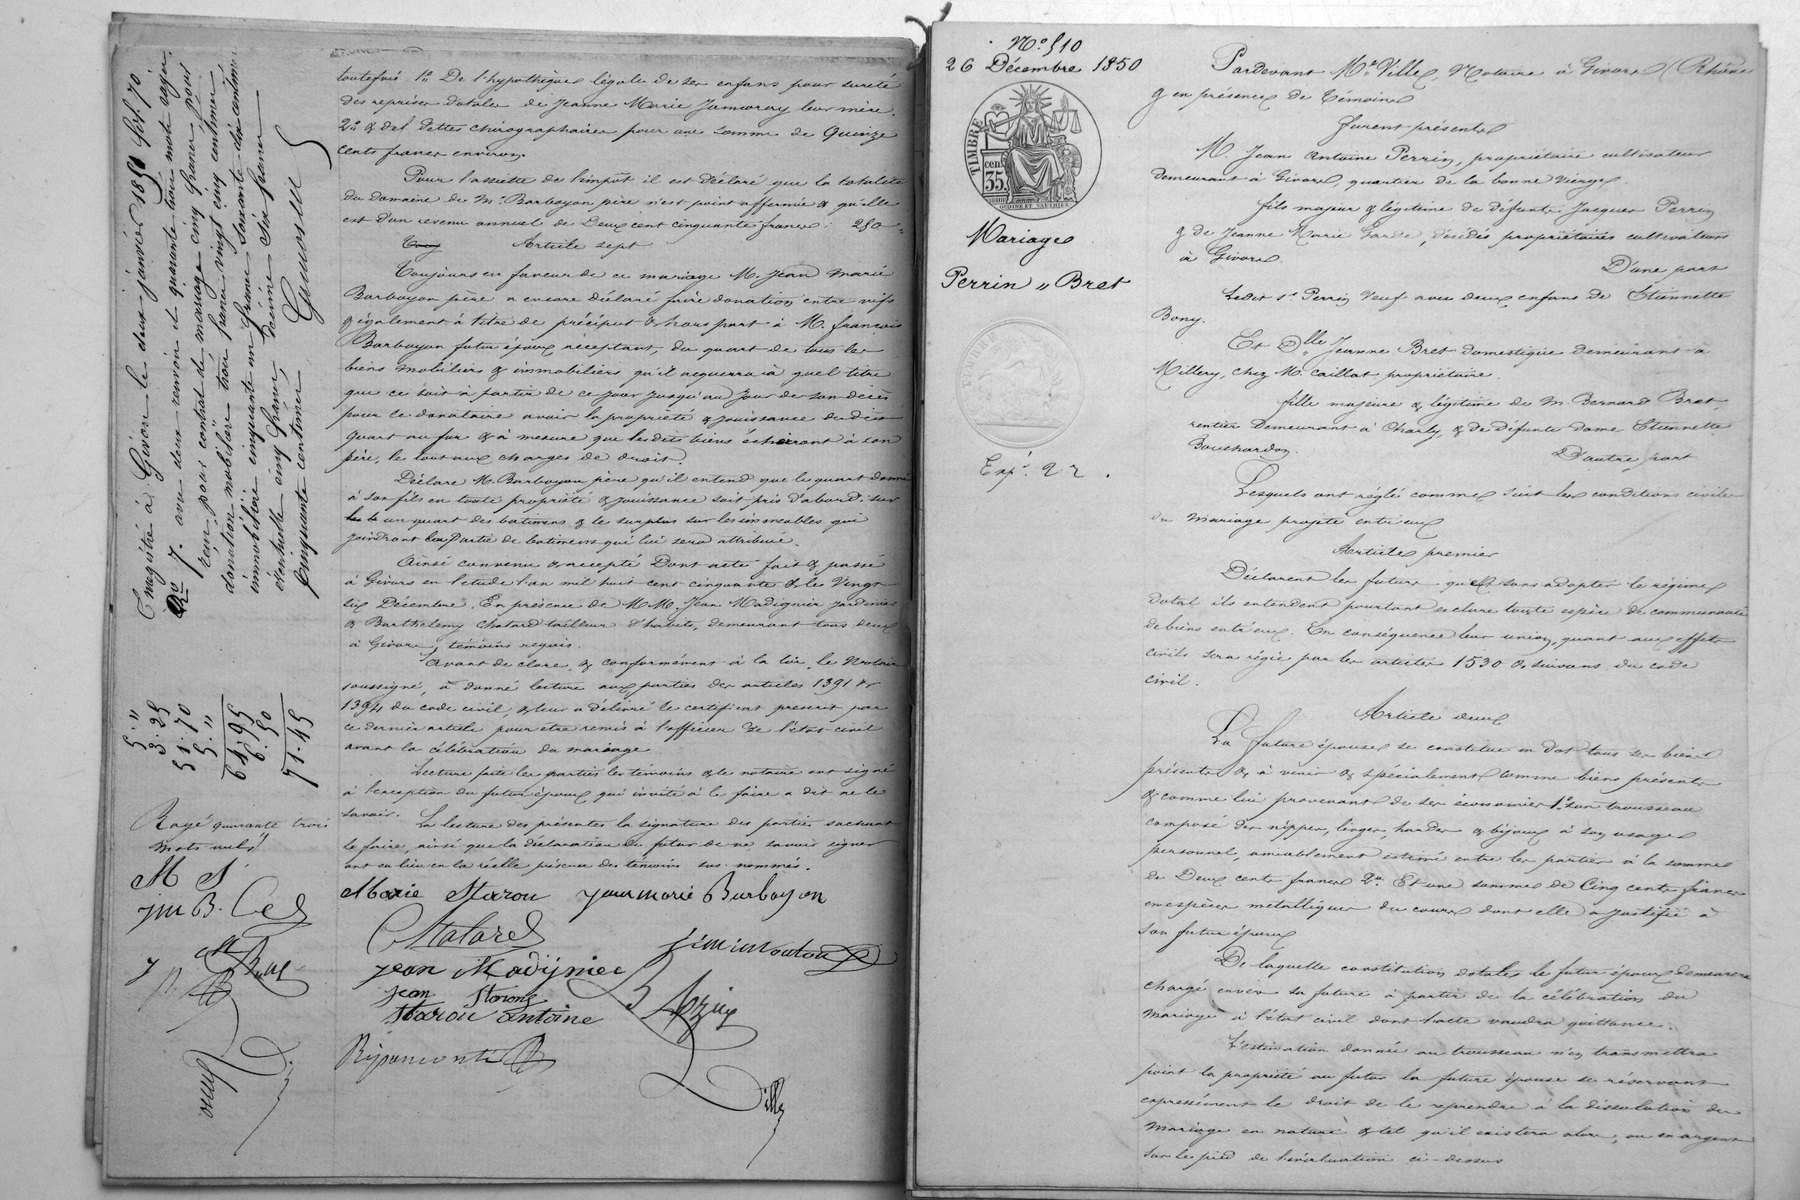 toutefois 1.o De l'hypothèque légale de ses enfans pour sureté
des reprises dotales de Jeanne Marie leur mère.
2.o & de dettes chirographaires pour une somme de Quinze
cents francs environ.
Pour l'assiette de l'impôt il est déclaré que la totalité
du domaine de Mr Barboyon père n'est point affermée & qu'elle
est d'un revenu annuel de Deux cent cinquante francs. 250 "
Article sept
Toujours en faveur de ce mariage M. Jean Marie
Barboyon père a encore déclaré faire donation entre vifs
également à titre de préciput & hors part à M. françois
Barboyon futur époux acceptant, du quart de tous les
biens mobiliers & immobiliers qu'il acquerra à quel titre
que ce soit à partir de ce jour jusqu'au jour de son décès
pour ce donataire avoir la propriété & jouissance de dit
quart au fur & à mesure que lesdits biens écherront à son
père, le tout aux charges de droit.
Déclare M. Barboyon père qu'il entend que le quart donné
à son fils en toute propriété & jouissance soit pris d'abord sur
un quart des batimens & le surplus sur les immeubles qui
joindront la partie de batimens qui lui sera attribuée.
Ainsi convenu & accepté Dont acte fait & passé
à Givors en l'etude l'an mil huit cent cinquante & le Vingt
six Décembre. En présence de M.M. Jean Madignier jardinier
& Barthelemy Chatard tailleur d'habits, demeurant tous deux
à Givors, témoins requis.
Avant de clore, & conformément à la loi, le Notaire
soussigné, a donné lecture aux parties des articles 1391 &
1394 du code civil, & leur a délivré le certificat prescrit par
ce dernier article pour etre remis à l'officier de l'état civil
avant la célébration du mariage.
Lecture faite les parties les témoins & le notaire ont signé
à l'exception du futur époux qui invité à le faire a dit ne le
savoir.
La lecture des présentes la signature des parties sachant
le faire, ainsi que la déclaration du futur de ne savoir signer
ont eu lieu en la réelle présence des témoins sus-nommés.
Marie Starou Jean marie Burboyon
Chatard
jean Madignier
jean Starou
Starou antoine
Ripamonti
Ville
Enregistré à Givors le deux janvier 1851 fol. 70
Ro 7. avec deux renvois et quarante trois mots rayés.
Reçu pour contrat de mariage cinq francs pour
donation mobilière trois francs vingt cinq centimes
immobilière cinquante un francs soixante dix centimes
éventuelle cinq francs, décime six francs
cinquante centimes
5. "
3. 25
51. 70
5. "
64. 95
6. 50
71. 45
Rayé quarante trois
mots nuls
M S
jm B.
No 510
26 Décembre 1850
TIMBRE
cen.
35.
Mariage
Perrin " Bret
Exp.n 22.
Pardevant Me Ville Notaire à Givors (Rhône
& en présence de Témoins
furent présents
M. Jean Antoine Perrin, propriétaire cultivateur
demeurant à Givors, quartier de la bonne Vierge
fils majeur & légitime de défunts Jacques Perrin
& de Jeanne Marie Garde, décédés propriétaires cultivateurs
à Givors.
D'une part
Ledit sr Perrin Veuf avec deux enfans de Etiennette
Bony.
Et Dlle Jeanne Bret domestique demeurant à
Millery, chez M. Caillat propriétaire.
fille majeure & légitime de M. Bernard Bret,
rentier demeurant à Charly, & de défunte dame Etiennette
Bouchardon.
D'autre part
Lesquels ont réglé comme suit les conditions civiles
du mariage projeté entr'eux
Article premier
Déclarent les futurs que sans adopter le régime
dotal ils entendent pourtant exclure toute espèce de communauté
de biens entr'eux. En conséquence leur union, quant aux effets
civils sera régie par les articles 1530 & suivans du code
civil.
Article deux
La future épouse se constitue en dot tous ses biens
présents & à venir & spécialement comme biens présents
& comme lui provenant de ses économies 1.o son trousseau
composé des nippes, linges, hardes & bijoux à son usage
personnel, amiablement estimé entre les parties à la somme
de Deux cents francs 2.o Et une somme de Cinq cents francs
en espèces métalliques du cours dont elle a justifié à
son futur époux
De laquelle constitution dotale le futur époux demeurera
chargé envers sa future à partir de la célébration du
mariage à l'état civil dont l'acte vaudra quittance.
L'estimation donnée au trousseau n'en transmettra
point la propriété au futur la future épouse se réservant
expressément le droit de le reprendre à la dissolution du
mariage en nature & tel qu'il existera alors, ou en argent
sur le pied de l'évaluation ci-dessus